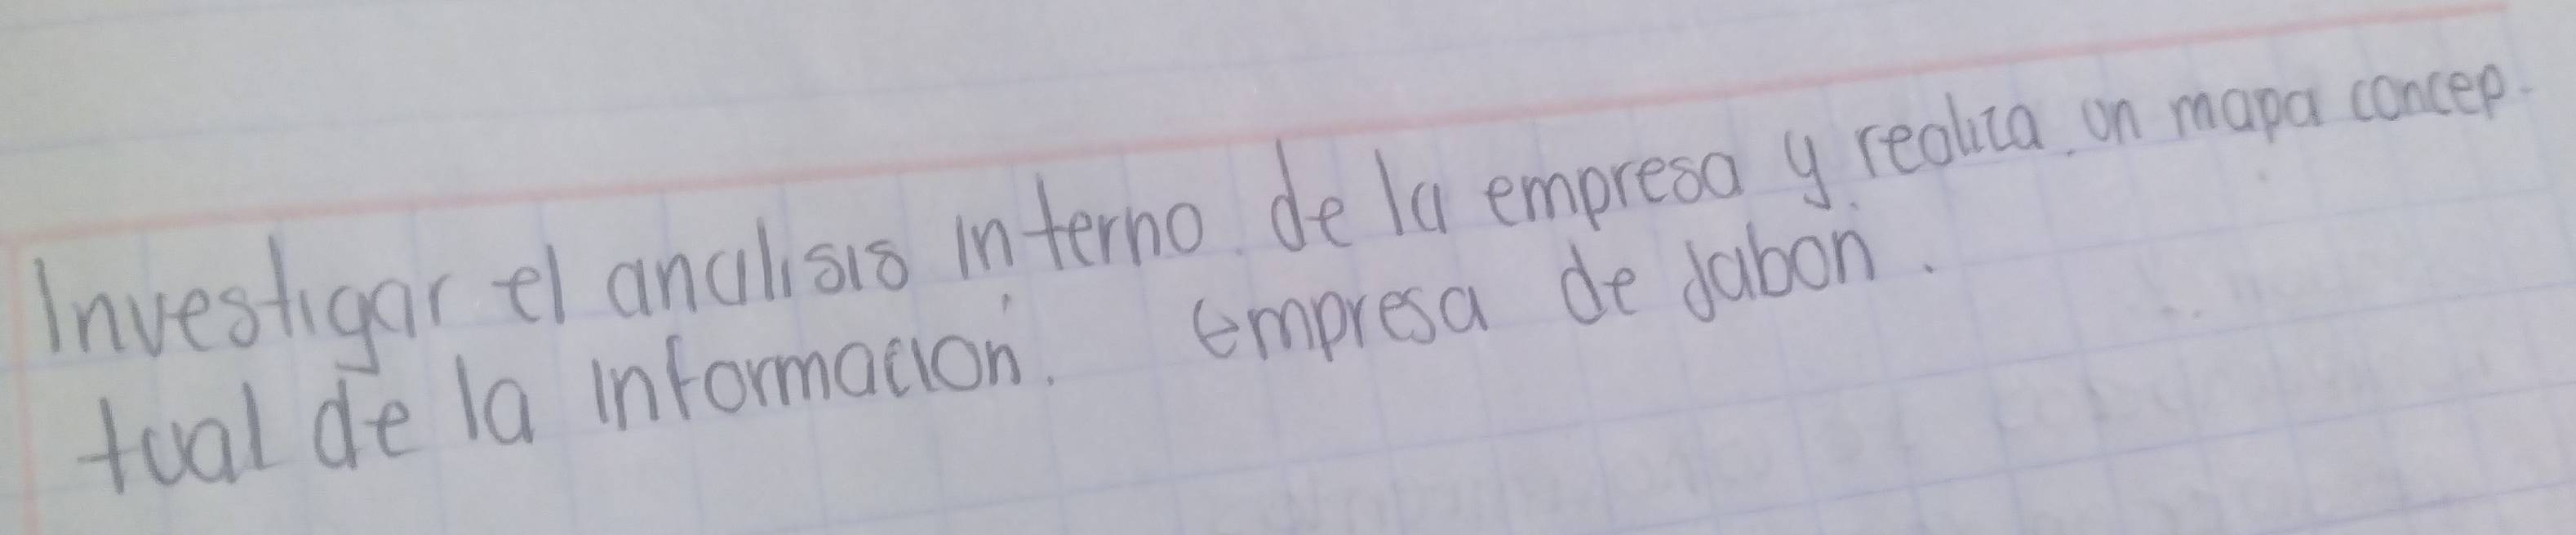 Investigar el analisis interno de la empresa y realiza un mapa concep-
tual de la información. empresa de Jabon.